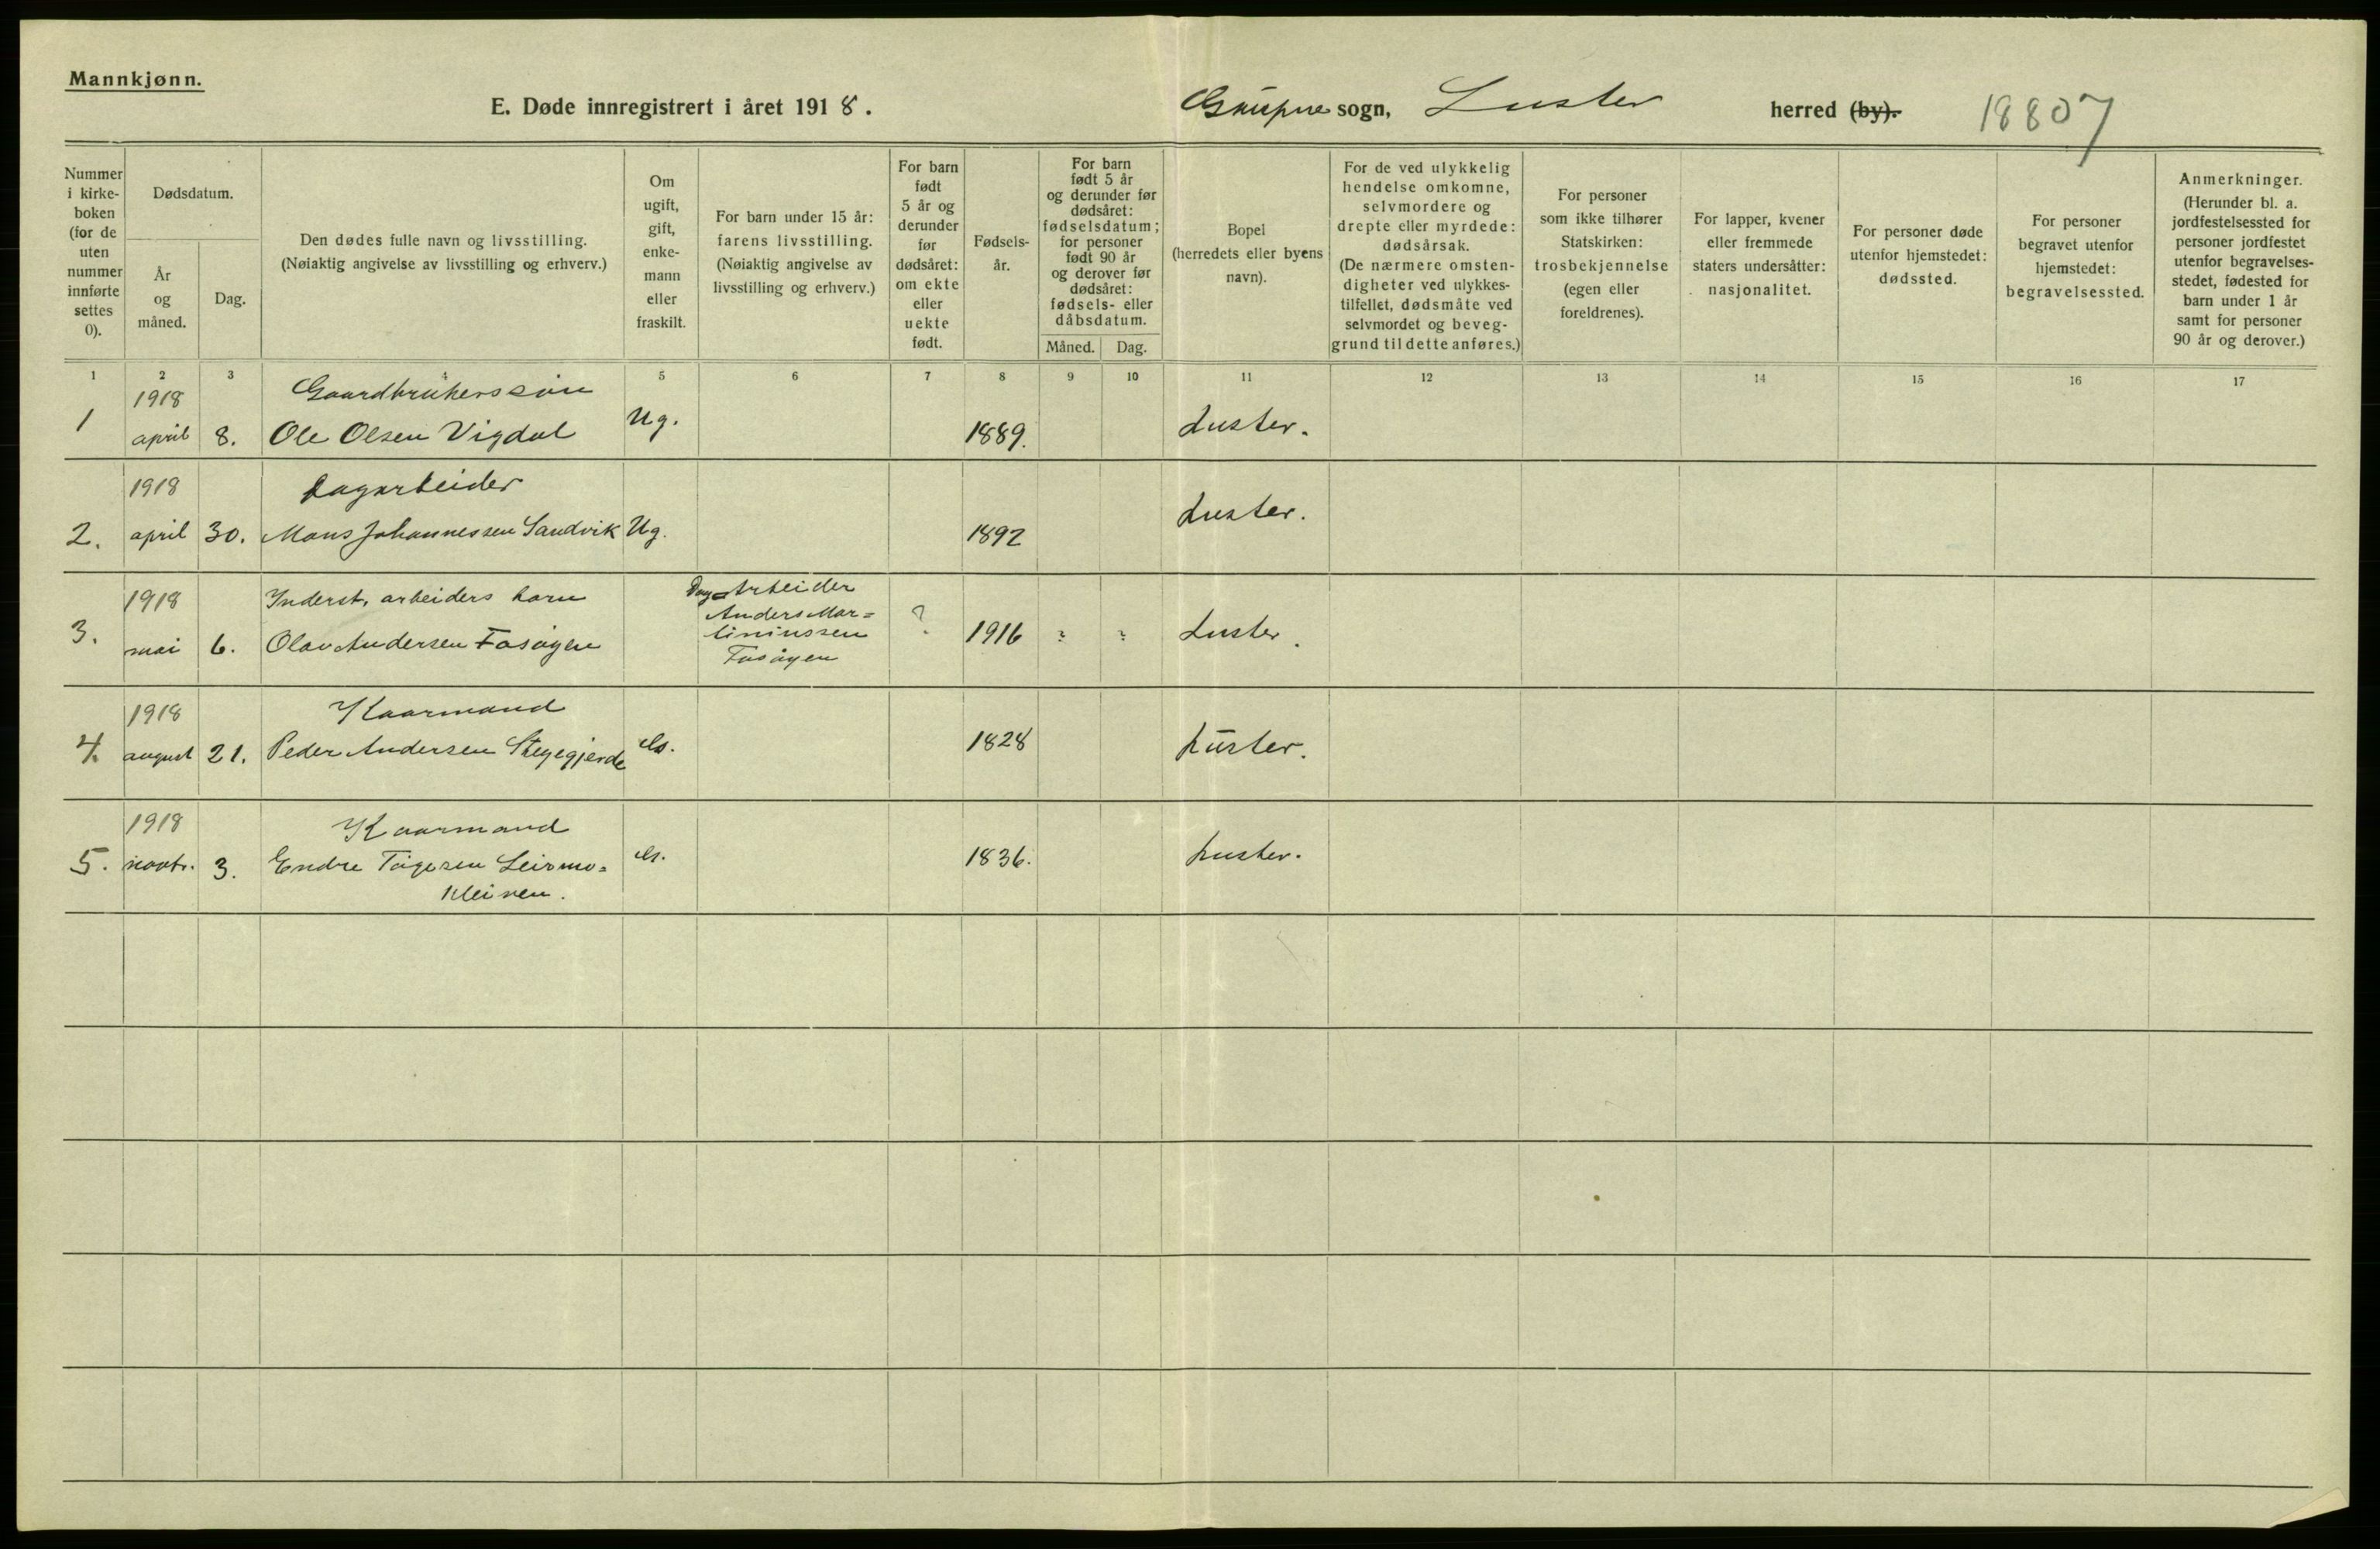 Mannkjønn.
E. Døde innregistrert i året 1918. Gaupne sogn, Luster herred (by). 18807
Nummer i kirke-boken (for de uten nummer innførte settes 0).
Dødsdatum.
År og måned.
Dag.
Den dødes fulle navn og livsstilling.
(Nøiaktig angivelse av livsstilling og erhverv.)
Om ugift, gift, enke-mann eller fraskilt.
For barn under 15 år: farens livsstilling. (Nøiaktig angivelse av livsstilling og erhverv.)
For barn født 5 år og derunder før dødsåret: om ekte eller uekte født.
Fødsels-år.
For barn født 5 år og derunder før dødsåret: fødselsdatum; for personer født 90 år og derover før dødsåret: fødsels- eller dåbsdatum.
Måned. Dag.
Bopel (herredets eller byens navn).
For de ved ulykkelig hendelse omkomne, selvmordere og drepte eller myrdede: dødsårsak. (De nærmere omsten-digheter ved ulykkes-tilfellet, dødsmåte ved selvmordet og beveg-grund til dette anføres.)
For personer som ikke tilhører Statskirken: trosbekjennelse (egen eller foreldrenes).
For lapper, kvener eller fremmede staters undersåtter: nasjonalitet.
For personer døde utenfor hjemstedet: dødssted.
For personer begravet utenfor hjemstedet: begravelsessted.
Anmerkninger. (Herunder bl. a. jordfestelsessted for personer jordfestet utenfor begravelses-stedet, fødested for barn under 1 år samt for personer 90 år og derover.)
1 2 3 4 5 6 7 8 9 10 11 12 13 14 15 16 17
1918 Gaardbrukerssøn
1 april 8. Ole Olsen Vigdal Ug. 1889. Luster.
1918 Dagarbeider
2. april 30. Mons Johannessen Sandvik Ug. 1892 Luster.
1918 Inderst, arbeiders barn Dag=Arbeider
Anders Mar=
3. mai 6. Olav Andersen Fasøyen tiniussen ? 1916 ? ? Luster.
Fasøyen
1918 Kaarmand
4. august 21. Peder Andersen Stegegjerde 1828 Luster.
1918 Kaarmand
5. novbr. 3. Endre Leirmo= 1836. Luster.
kleiven.